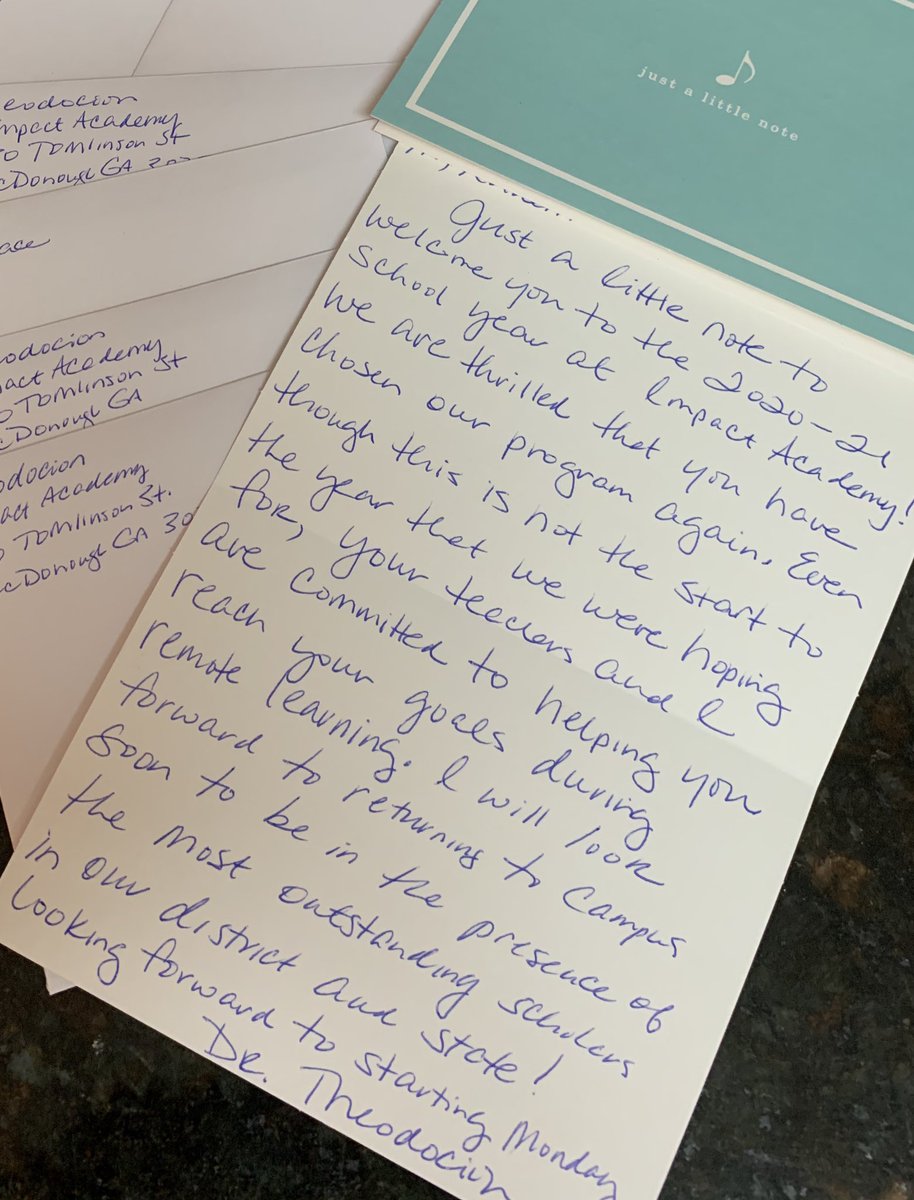 just a little note
Just a little note to
welcome you to the 2020-21
school year at Impact Academy!
We are thrilled that you have
chosen our program again. Even
though this is not the start to
the year that we were hoping
for, your teachers and I
are committed to helping you
reach your goals during
remote learning. I will look
forward to returning to campus
soon to be in the presence of
the most outstanding scholars
in our district and state!
Looking forward to starting Monday
Dr. Theodocion
eodocion
mpact Academy
Tomlinson St
cDonough GA
odocion
act Academy
Tomlinson St
cDonough GA
odocion
act Academy
Tomlinson St.
cDonough GA 30